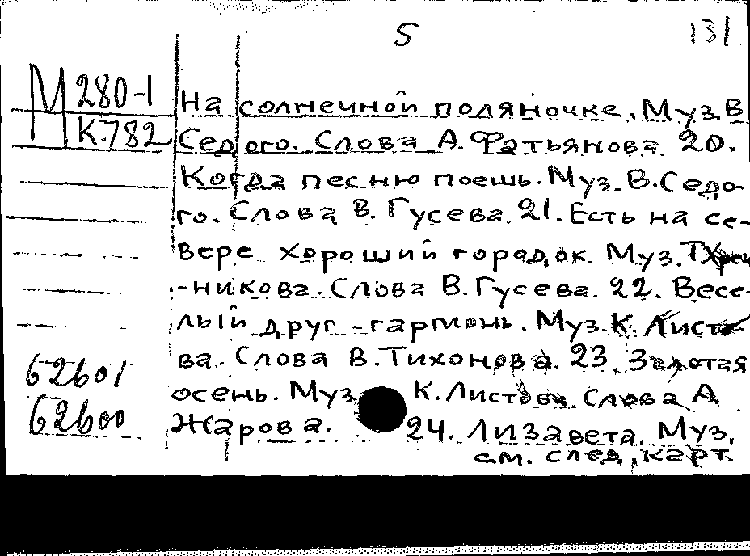 5
131
М 280-1
К-782
На солнечной поляночке. Муз. В
Седого. Слова А. Фатьянова. 20.
Когда песню поешь. Муз. В. Седо-
го. Слова В. Гусева. 21. Есть на се-
вере хороший городок. Муз. Т. Хрен
-никова. Слова В. Гусева. 22. Весе-
лый друг - гармонь. Муз. К. Листо
ва. Слова В. Тихонова. 23. Золотая
осень. Муз К. Листова. Слова А
Жарова. 24. Лизавета. Муз.
см. след. карт.
62601
62600